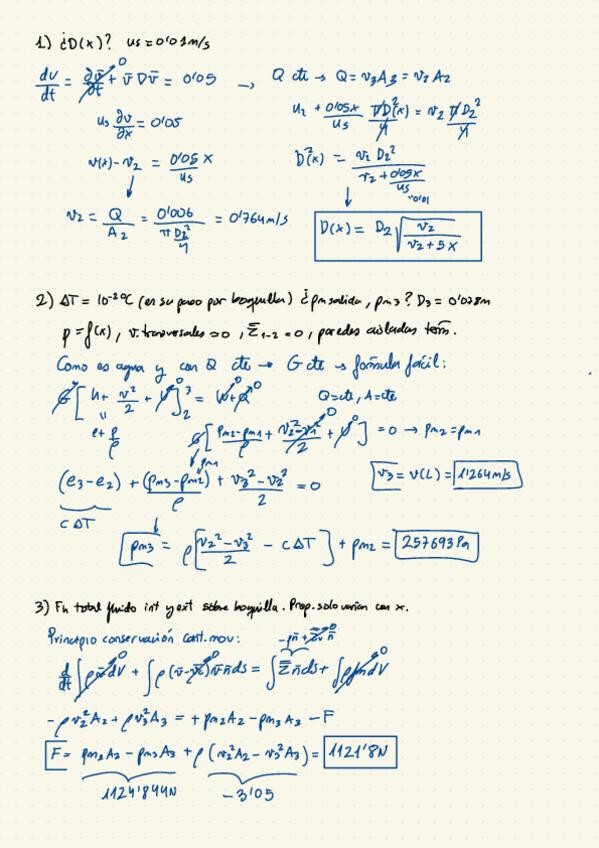 1) ¿D(x)? us = 0'01m/s
dv/dt = ∂v̄/∂t→0 + v̄ ∇v̄ = 0'05 → Q cte → Q = v3 A3 = v2 A2
us ∂v/∂x = 0'05
v2 + 0'05x/us πD²(x)/4 = v2 πD2²/4
v(x) - v2 = 0'05 x/us
D²(x) = v2 D2²/(v2 + 0'05x/us) 0'01
v2 = Q/A2 = 0'006/(π D2²/4) = 0'764m/s
D(x) = D2 √(v2/(v2 + 5x))
2) ΔT = 10⁻²ºC (en su paso por boquilla) ¿pm salida, pm3? D3 = 0'078m
p = f(x), v. transversales = 0, Σ̿1-2 = 0, paredes aisladas term.
Como es agua y con Q cte → G cte → fórmula fácil:
G [h + v²/2 + U→0]₂³ = W→0 + Q→0
Q = cte, A = cte
e + p/ρ
G [(pm2 - pm1)/ρ + (v2² - v1²)/2→0 + U→0] = 0 → pm2 = pm1
pm1
(e3 - e2) + (pm3 - pm2)/ρ + (v3² - v2²)/2 = 0
v3 = v(L) = 1'264m/s
cΔT
pm3 = ρ[(v2² - v3²)/2 - cΔT] + pm2 = 257693Pa
3) Fn total fluido int y ext sobre boquilla. Prop. solo varían con x.
Principio conservación cant. mov: -pn̄ + Σ̿v n̄→0
d/dt ∫ρv̄dV→0 + ∫ρ(v̄ - v̄c→0)v̄n̄ds = ∫Σ̿n̄ds + ∫ρfmdV→0
-ρv2²A2 + ρv3²A3 = +pm2A2 - pm3A3 - F
F = pm2A2 - pm3A3 + ρ(v2²A2 - v3²A3) = 1121'8N
1124'844N -3'05